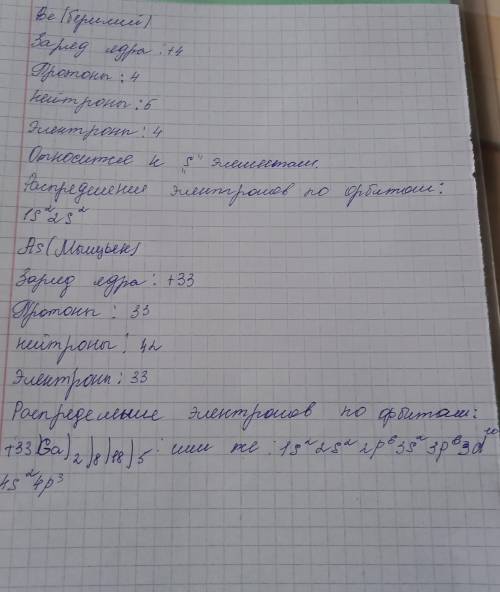 Be (берилий)
Заряд ядра: +4
Протоны: 4
Нейтроны: 5
Электроны: 4
Относится к "s" элементам.
Распределение электронов по орбитам:
1s²2s²
As (Мышьяк)
Заряд ядра: +33
Протоны: 33
нейтроны: 42
Электроны: 33
Распределение электронов по орбитам:
+33)Ga)₂)₈)₁₈)₅ или же: 1s²2s²2p⁶3s²3p⁶3d¹⁰
4s²4p³